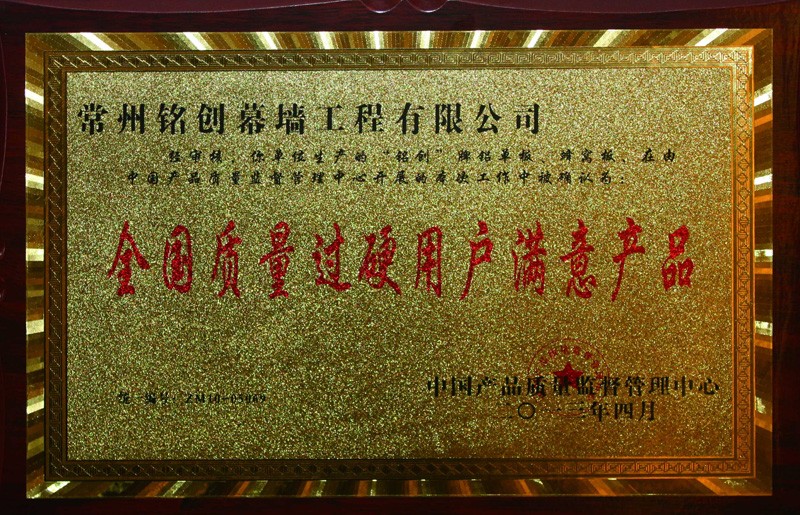 常州铭创幕墙工程有限公司
经审核，你单位生产的“铭创”牌铝单板、蜂窝板，在由
中国产品质量监督管理中心开展的审核工作中被确认为：
全国质量过硬用户满意产品
编号：ZM10-05069
中国产品质量监督管理中心
二〇一三年四月